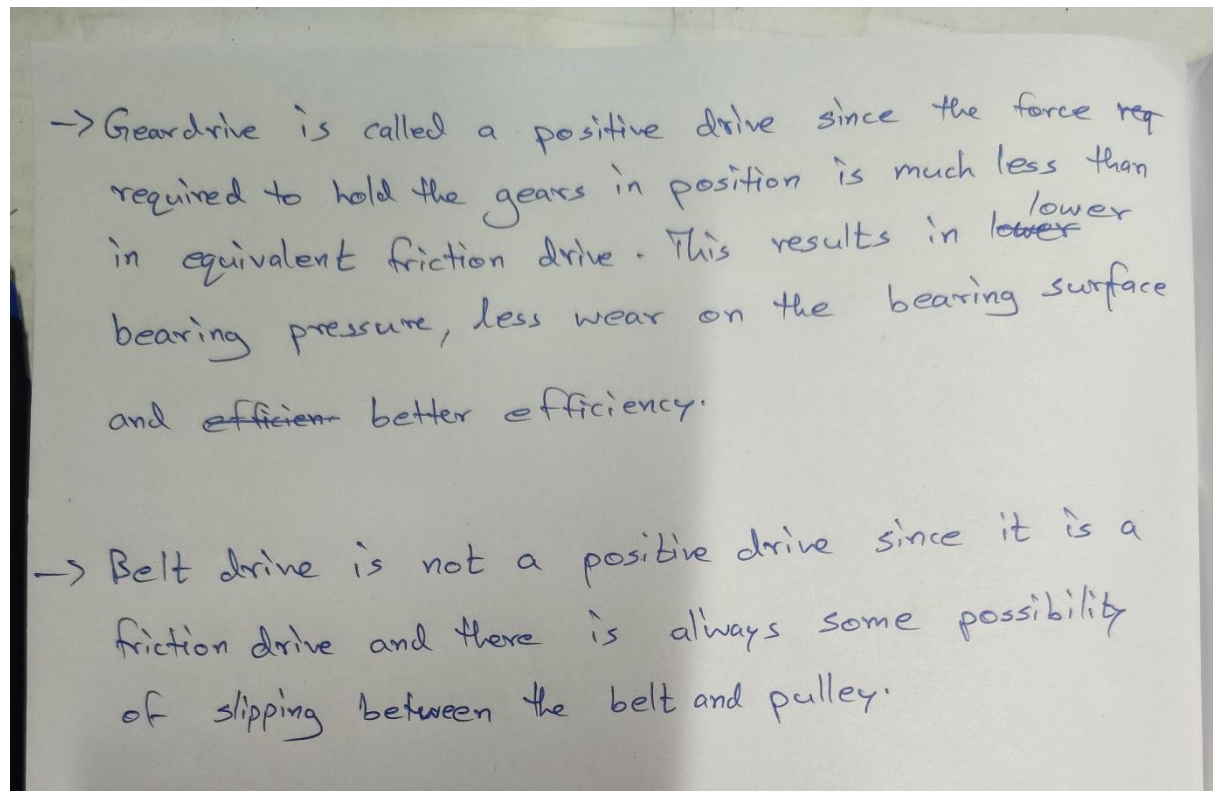 -> Geardrive is called a positive drive since the force req
required to hold the gears in position is much less than
in equivalent friction drive. This results in lower lower
bearing pressure, less wear on the bearing surface
and efficien better efficiency.
-> Belt drive is not a positive drive since it is a
friction drive and there is always some possibility
of slipping between the belt and pulley.